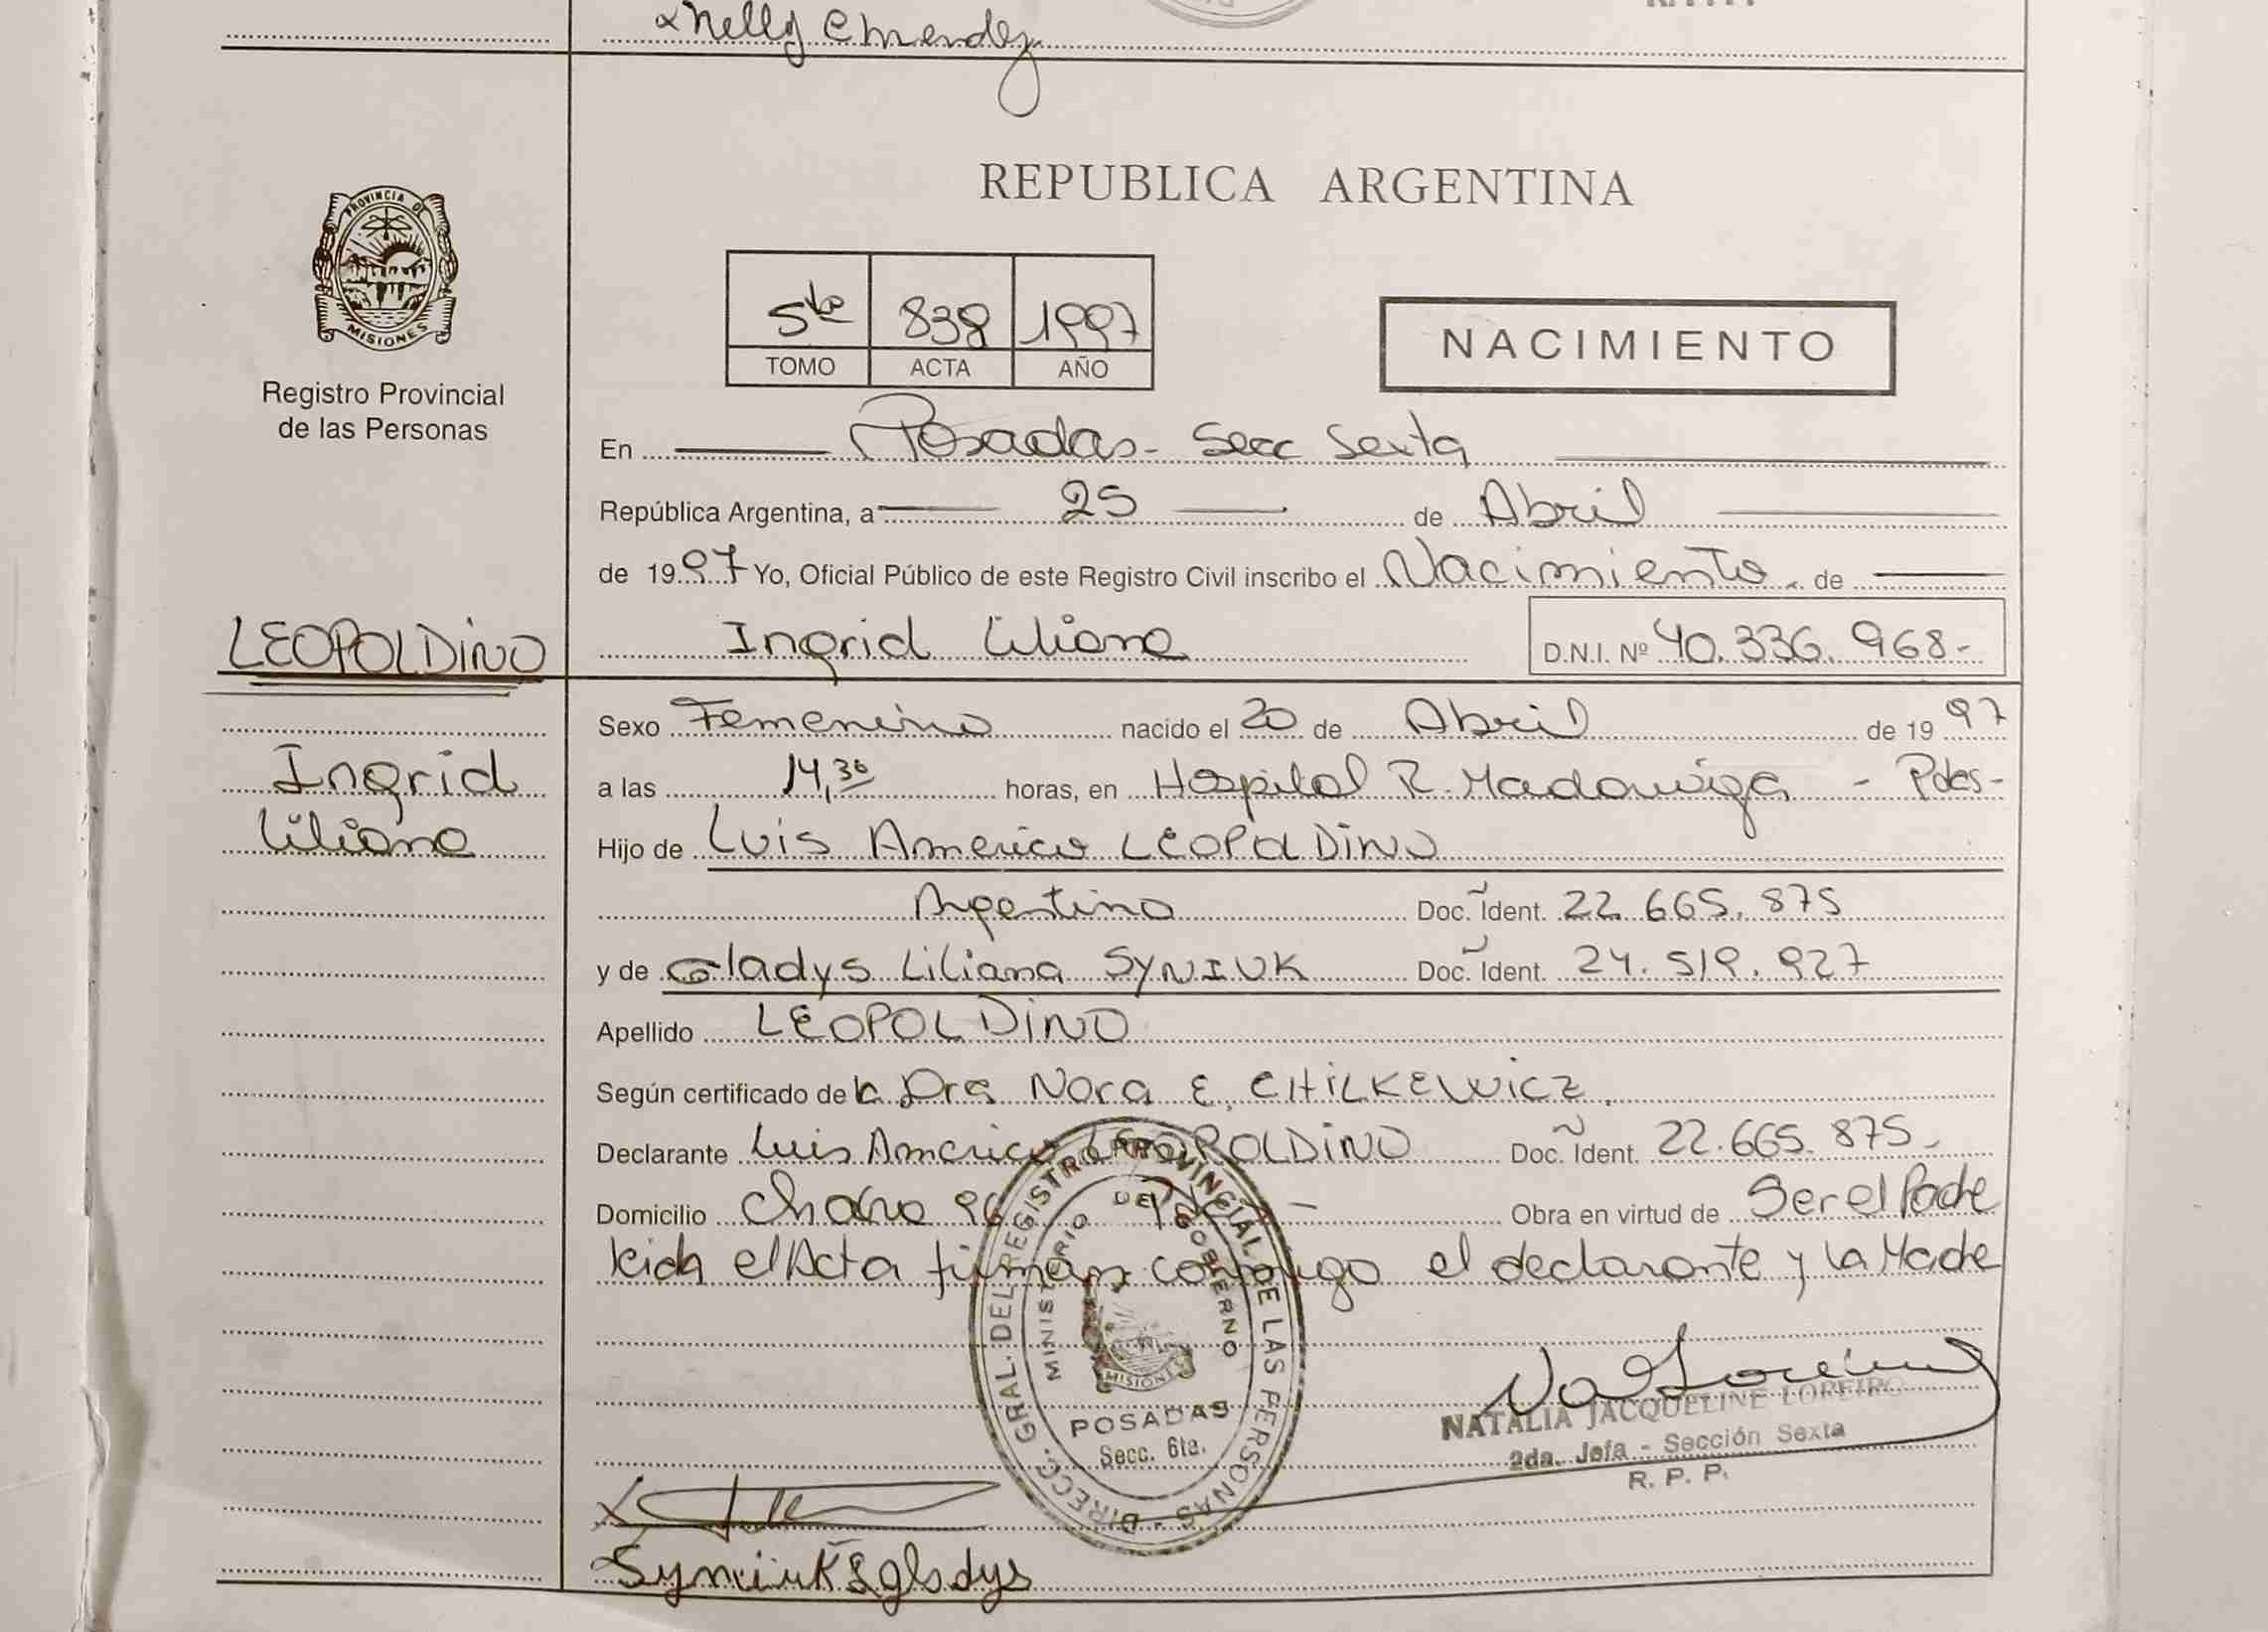 Nelly C Mendez
PROVINCIA DE
MISIONES
Registro Provincial
de las Personas
LEOPOLDINO
Ingrid
Liliana
REPUBLICA ARGENTINA
5to 838 1997
TOMO ACTA AÑO
NACIMIENTO
En Posadas - Secc Sexta
República Argentina, a 25 de Abril
de 1997 Yo, Oficial Público de este Registro Civil inscribo el Nacimiento de
Ingrid Liliana D.N.I. Nº 40.336.968-
Sexo Femenino nacido el 20 de Abril de 1997
a las 14,30 horas, en Hospital R. Madariaga - Pdas-
Hijo de Luis Americo LEOPOLDINO
Argentino Doc. Ident. 22.665.875
y de Gladys Liliana SYNIUK Doc. Ident. 24.519.927
Apellido LEOPOLDINO
Según certificado de la Dra Nora E. CHILKEWICZ.
Declarante Luis Americo LEOPOLDINO Doc. Ident. 22.665.875-
Domicilio Obra en virtud de Ser el Padre
Leida el Acta firman conmigo el declarante y la Madre
DIRECC. GRAL. DEL REGISTRO PROVINCIAL DE LAS PERSONAS
MINISTERIO DE GOBIERNO
MISIONES
POSADAS
Secc. 6ta.
NATALIA JACQUELINE LOREIRO
2da. Jefa - Sección Sexta
R. P. P.
Syniuk Gladys